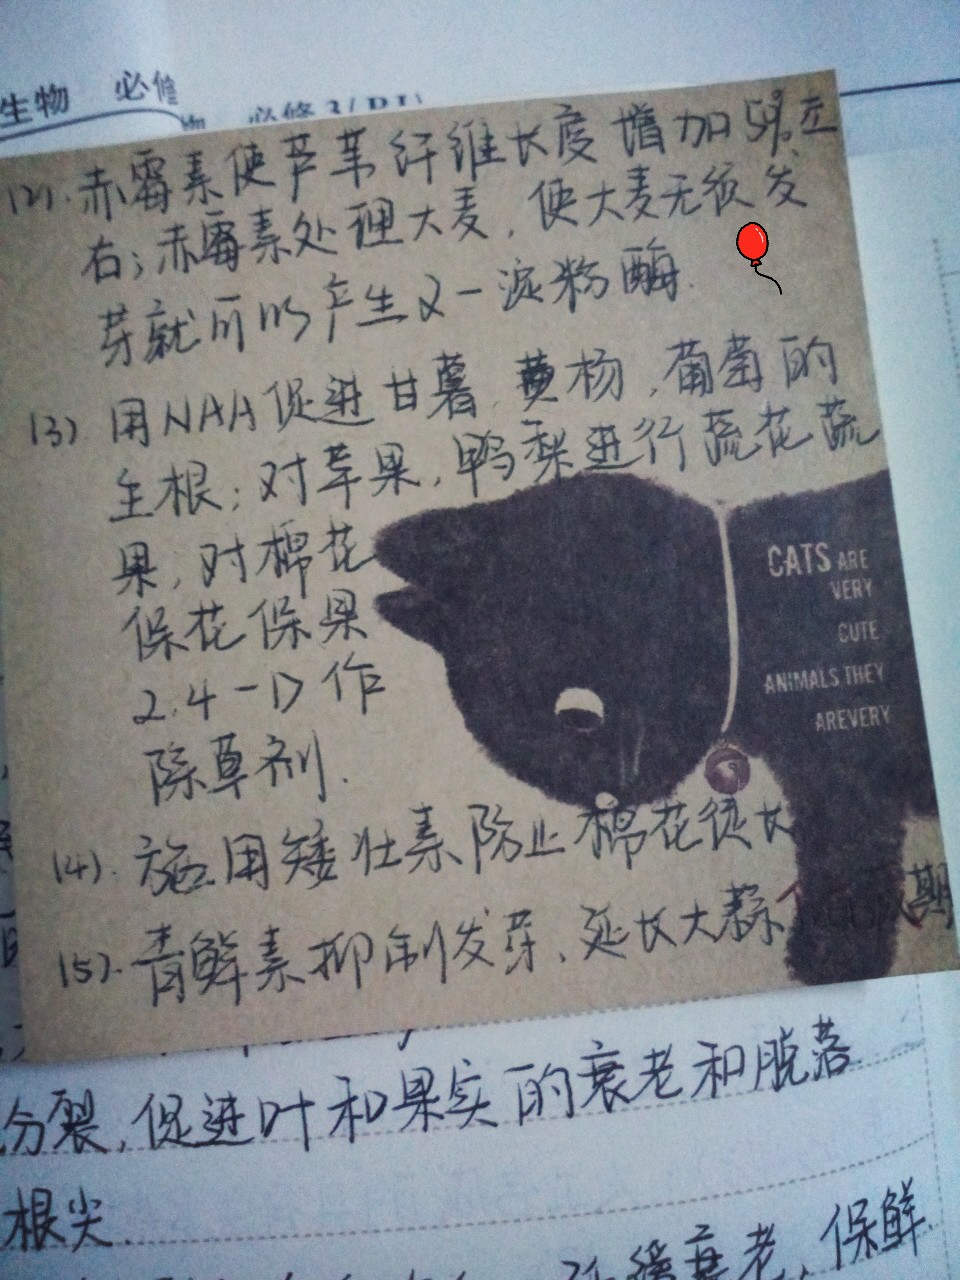 生物 必修
必修3(RJ)
(2).赤霉素使芦苇纤维长度增加5%左
右;赤霉素处理大麦,使大麦无须发
芽就可以产生α-淀粉酶.
(3) 用NAA促进甘薯,黄杨,葡萄的
生根;对苹果,鸭梨进行疏花疏
果,对棉花
保花保果
2.4-D作
除草剂.
CATS ARE
VERY
CUTE
ANIMALS.THEY
AREVERY
(4).施用矮壮素防止棉花徒长
(5).青鲜素抑制发芽、延长大蒜期
分裂,促进叶和果实的衰老和脱落
根尖.
衰老,保鲜.